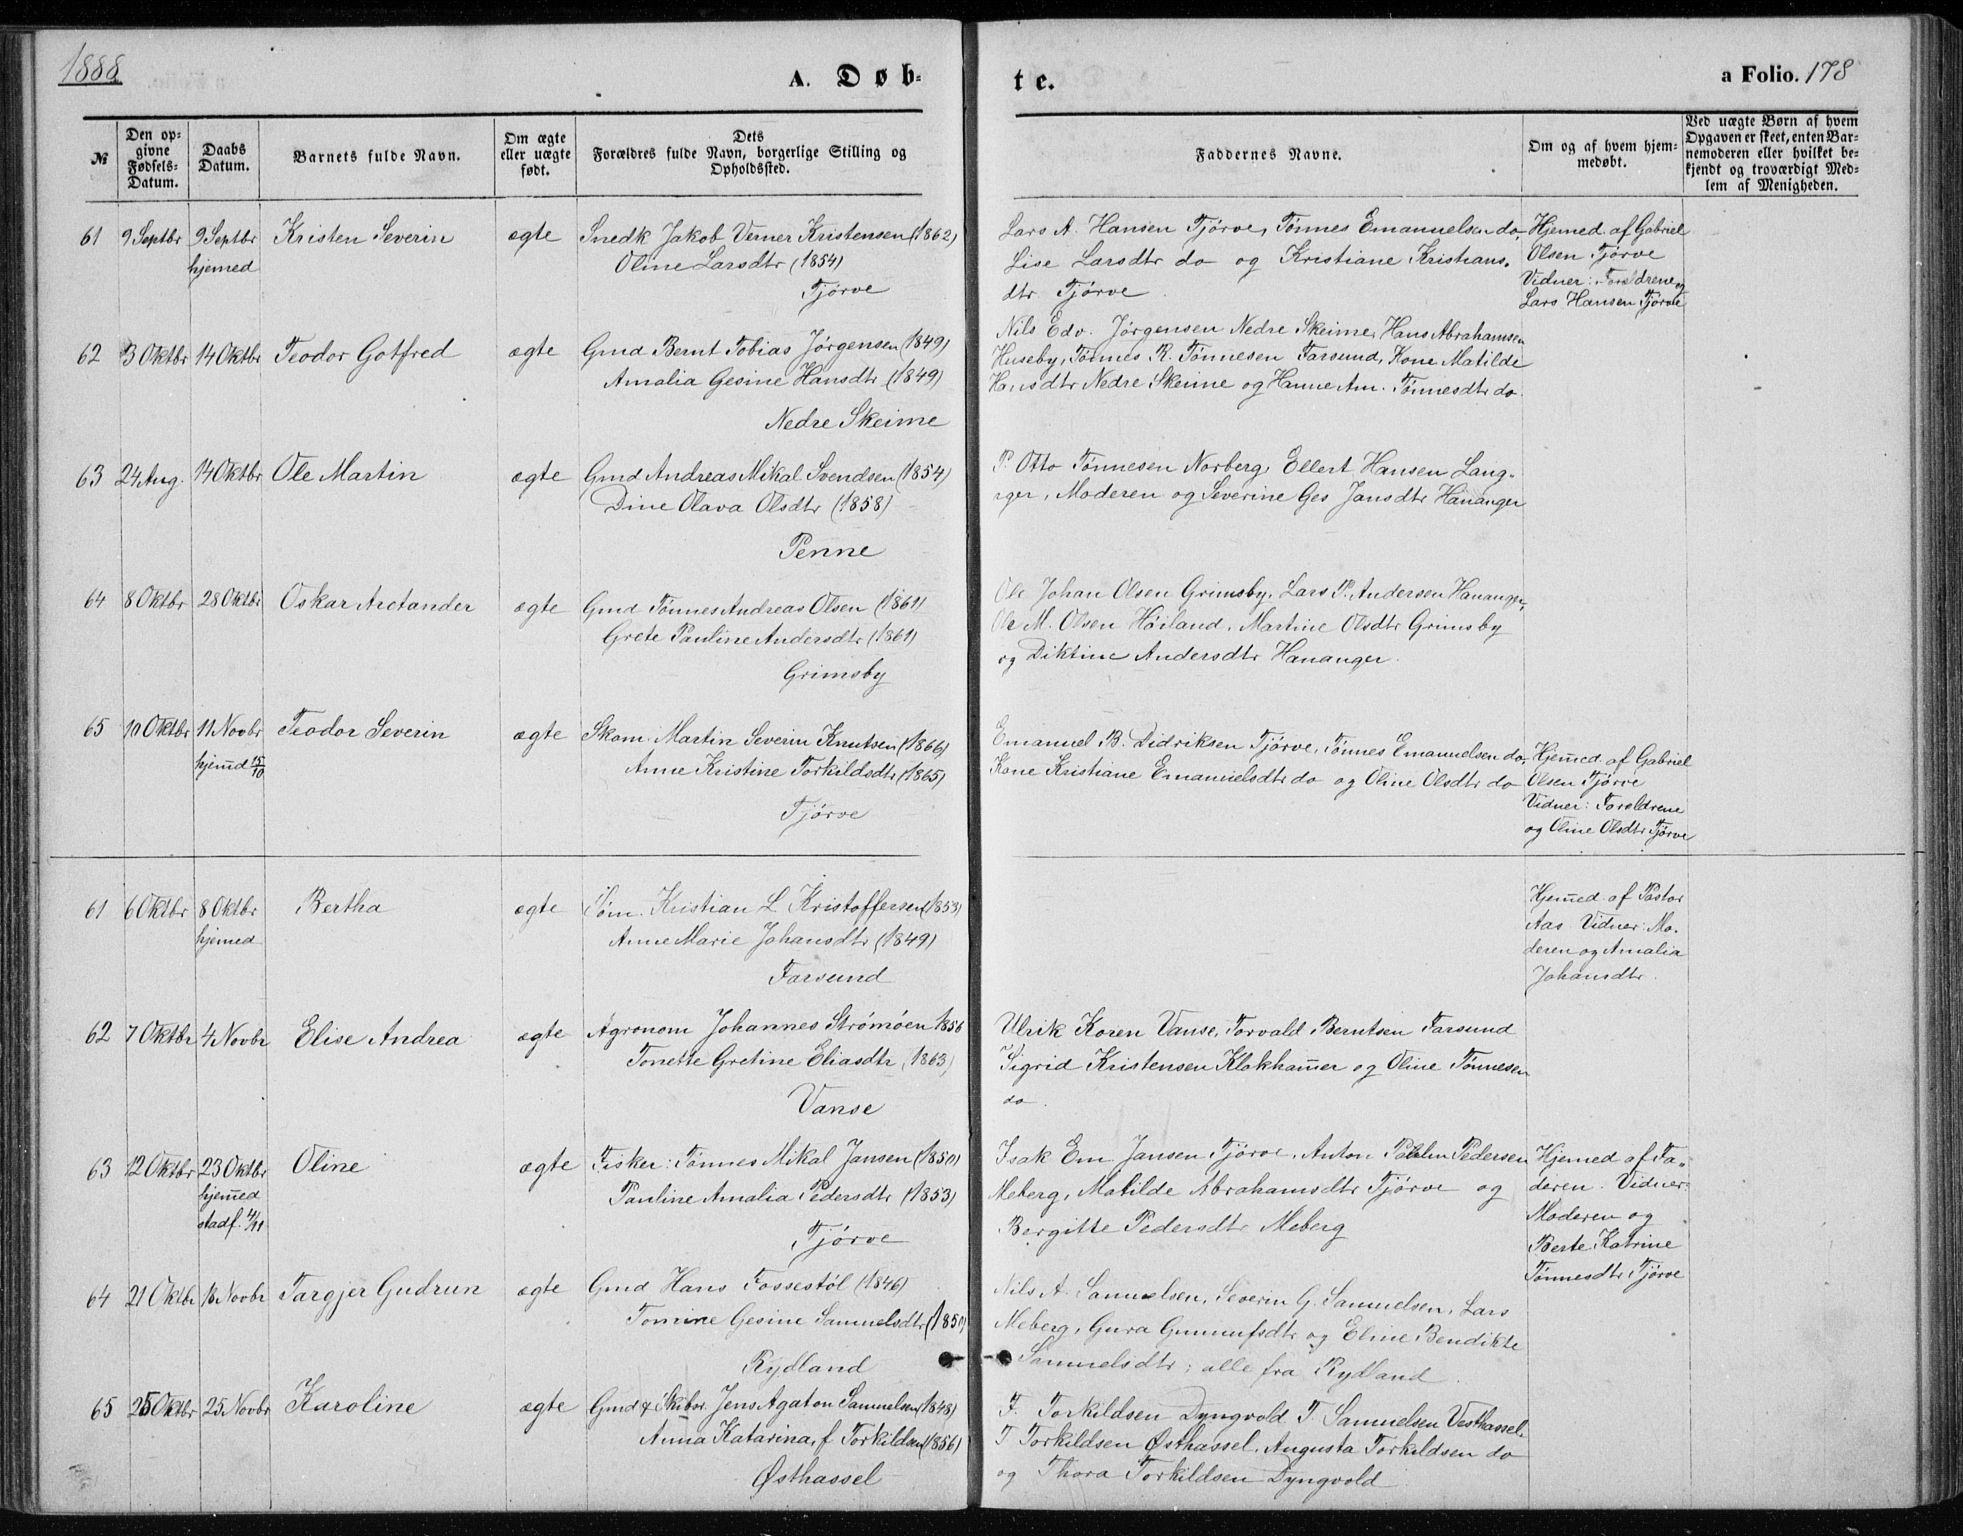 1888
A. Døb-
te.
a Folio. 178
№
Den op-
givne
Fødsels-
Datum.
Daabs
Datum.
Barnets fulde Navn.
Om ægte
eller uægte
født.
Dets
Forældres fulde Navn, borgerlige Stilling og
Opholdssted.
Faddernes Navne.
Om og af hvem hjem-
medøbt.
Ved uægte Børn af hvem
Opgaven er skeet, enten Bar-
nemoderen eller hvilket be-
kjendt og troværdigt Med-
lem af Menigheden.
61 9 Septbr 9 Septbr Kristen Severin ægte Snedk Jakob Verner Kristensen (1862)
hjemed Oline Larsdtr (1854)
Tjørve
Lars A. Hansen Tjørve, Tønnes Emanuelsen do,
Lise Larsdtr do og Kristiane Kristians-
dtr Tjørve
Hjemed af Gabriel
Olsen Tjørve
Vidner: Forældrene og
Lars Hansen Tjørve
62 3 Oktbr 14 Oktbr Teodor Gotfred ægte Gmd Bernt Tobias Jørgensen (1849)
Amalia Gesine Hansdtr (1849)
Nedre Skeime
Nils Edv. Jørgensen Nedre Skeime, Hans Abrahamsen
Huseby, Tønnes R. Tønnesen Farsund, Kone Matilde
Hansdtr Nedre Skeime og Hanne Am. Tønnesdtr do.
63 24 Aug. 14 Oktbr Ole Martin ægte Gmd Andreas Mikal Svendsen (1854)
Dine Olava Olsdtr (1858)
Penne
P. Otto Tønnesen Norberg, Ellert Hansen Lang-
ager, Moderen og Severine Ges Jansdtr Hananger
64 8 Oktbr 28 Oktbr Oskar Arctander ægte Gmd Tønnes Andreas Olsen (1861)
Grete Pauline Andersdtr (1861)
Grimsby
Ole Johan Olsen Grimsby, Lars P. Andersen Hananger,
Ole M. Olsen Höiland, Martine Olsdtr Grimsby
og Diktine Andersdtr Hananger.
65 10 Oktbr 11 Novbr Teodor Severin ægte Skom. Martin Severin Knutsen (1866)
hjemd 15/10 Anne Kristine Torkildsdtr (1865)
Tjørve
Emanuel B. Didriksen Tjørve, Tønnes Emanuelsen do,
Kone Kristiane Emanuelsdtr do og Oline Olsdtr do
Hjemed af Gabriel
Olsen Tjørve
Vidner: Forældrene
og Oline Olsdtr Tjørve
61 6 Oktbr 8 Oktbr Bertha ægte Tøm. Kristian L Kristoffersen (1853)
hjemed Anne Marie Johansdtr (1849)
Farsund
Hjemed af Pastor
Aas Vidner: Mo-
deren og Amalia
Johansdtr.
62 7 Oktbr 4 Novbr Elise Andrea ægte Agronom Johannes Strömöen 1856
Tonette Gretine Eliasdtr (1863)
Vanse
Ulrik Koren Vanse, Torvald Berntsen Farsund
Sigrid Kristensen Klokhamer og Oline Tønnesen
do.
63 12 Oktbr 23 Oktbr Oline ægte Fisker: Tønnes Mikal Jansen (1850)
hjemed Pauline Amalia Pedersdtr (1853)
stadf. 4/11 Tjørve
Isak Em Jansen Tjørve, Anton Pedersen
Meberg, Matilde Abrahamsdtr Tjørve og
Bergitte Pedersdtr Meberg
Hjemed af Fa-
deren. Vidner:
Moderen og
Berte Katrine
Tønnesdtr Tjørve
64 21 Oktbr 18 Novbr Targjer Gudrun ægte Gmd Hans Fossestöl (1846)
Tomine Gesine Samuelsdtr (1850)
Rydland
Nils A. Samuelsen, Severin G. Samuelsen, Lars
Meberg, Gura Gunnufsdtr og Eline Bendikte
Samuelsdtr, alle fra Rydland.
65 25 Oktbr 25 Novbr Karoline ægte Gmd & Skibsr. Jens Agaton Samuelsen (1848)
Anna Katarina, f Torkildsen (1856)
Østhassel
F. Torkildsen Dyngvold T. Samuelsen Vesthassel
T Torkildsen Østhassel, Augusta Torkildsen do
og Thora Torkildsen Dyngvold